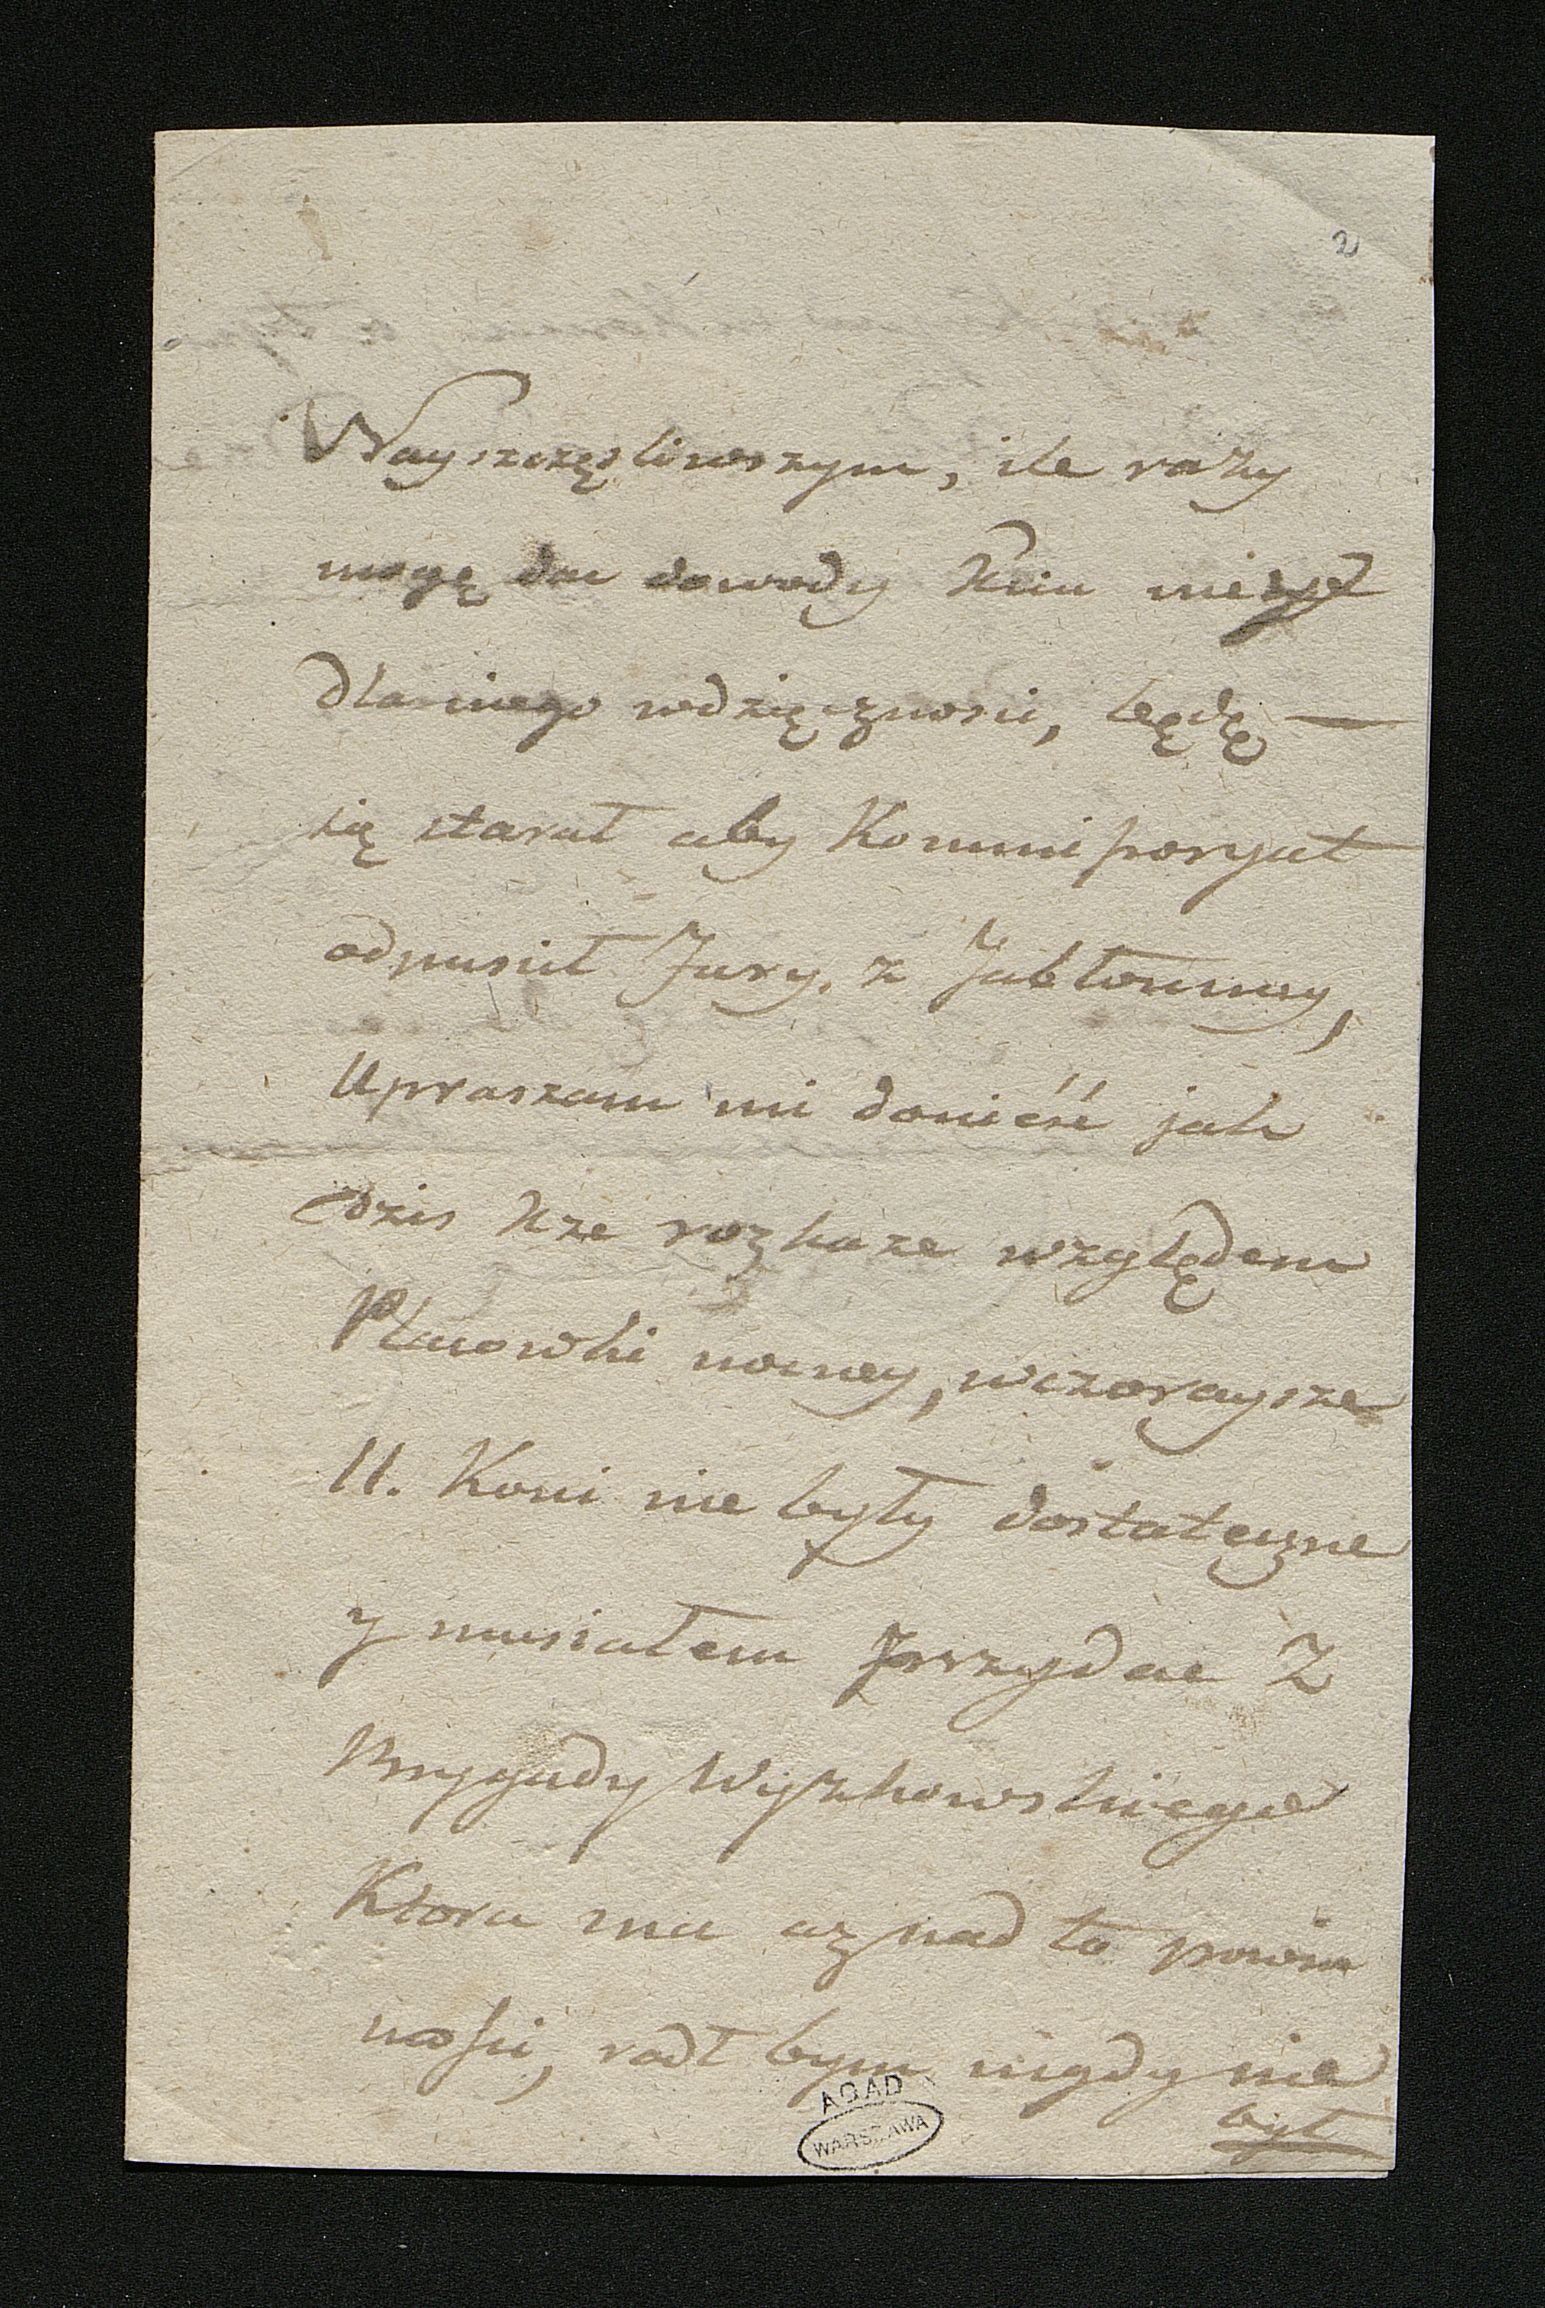 2
Nayszczęsliwszym, ile rázy
mogę dac dowody Xciu mey
dlaniego wdzięcznosci, będę
się starał aby Kommissoryat
odpuscił Fury, z Jabłonny,
Upraszam mi donieść jak
dzis Xze rozkaze względem
Placowki nocney, wczoraysze
11. Koni nie były dostateczne
y musiałem przydac z
Brygady Wyszkowskiego
Ktora ma az nad to powin
nosci, radł bym nigdy nie
był
AGAD
WARSZAWA